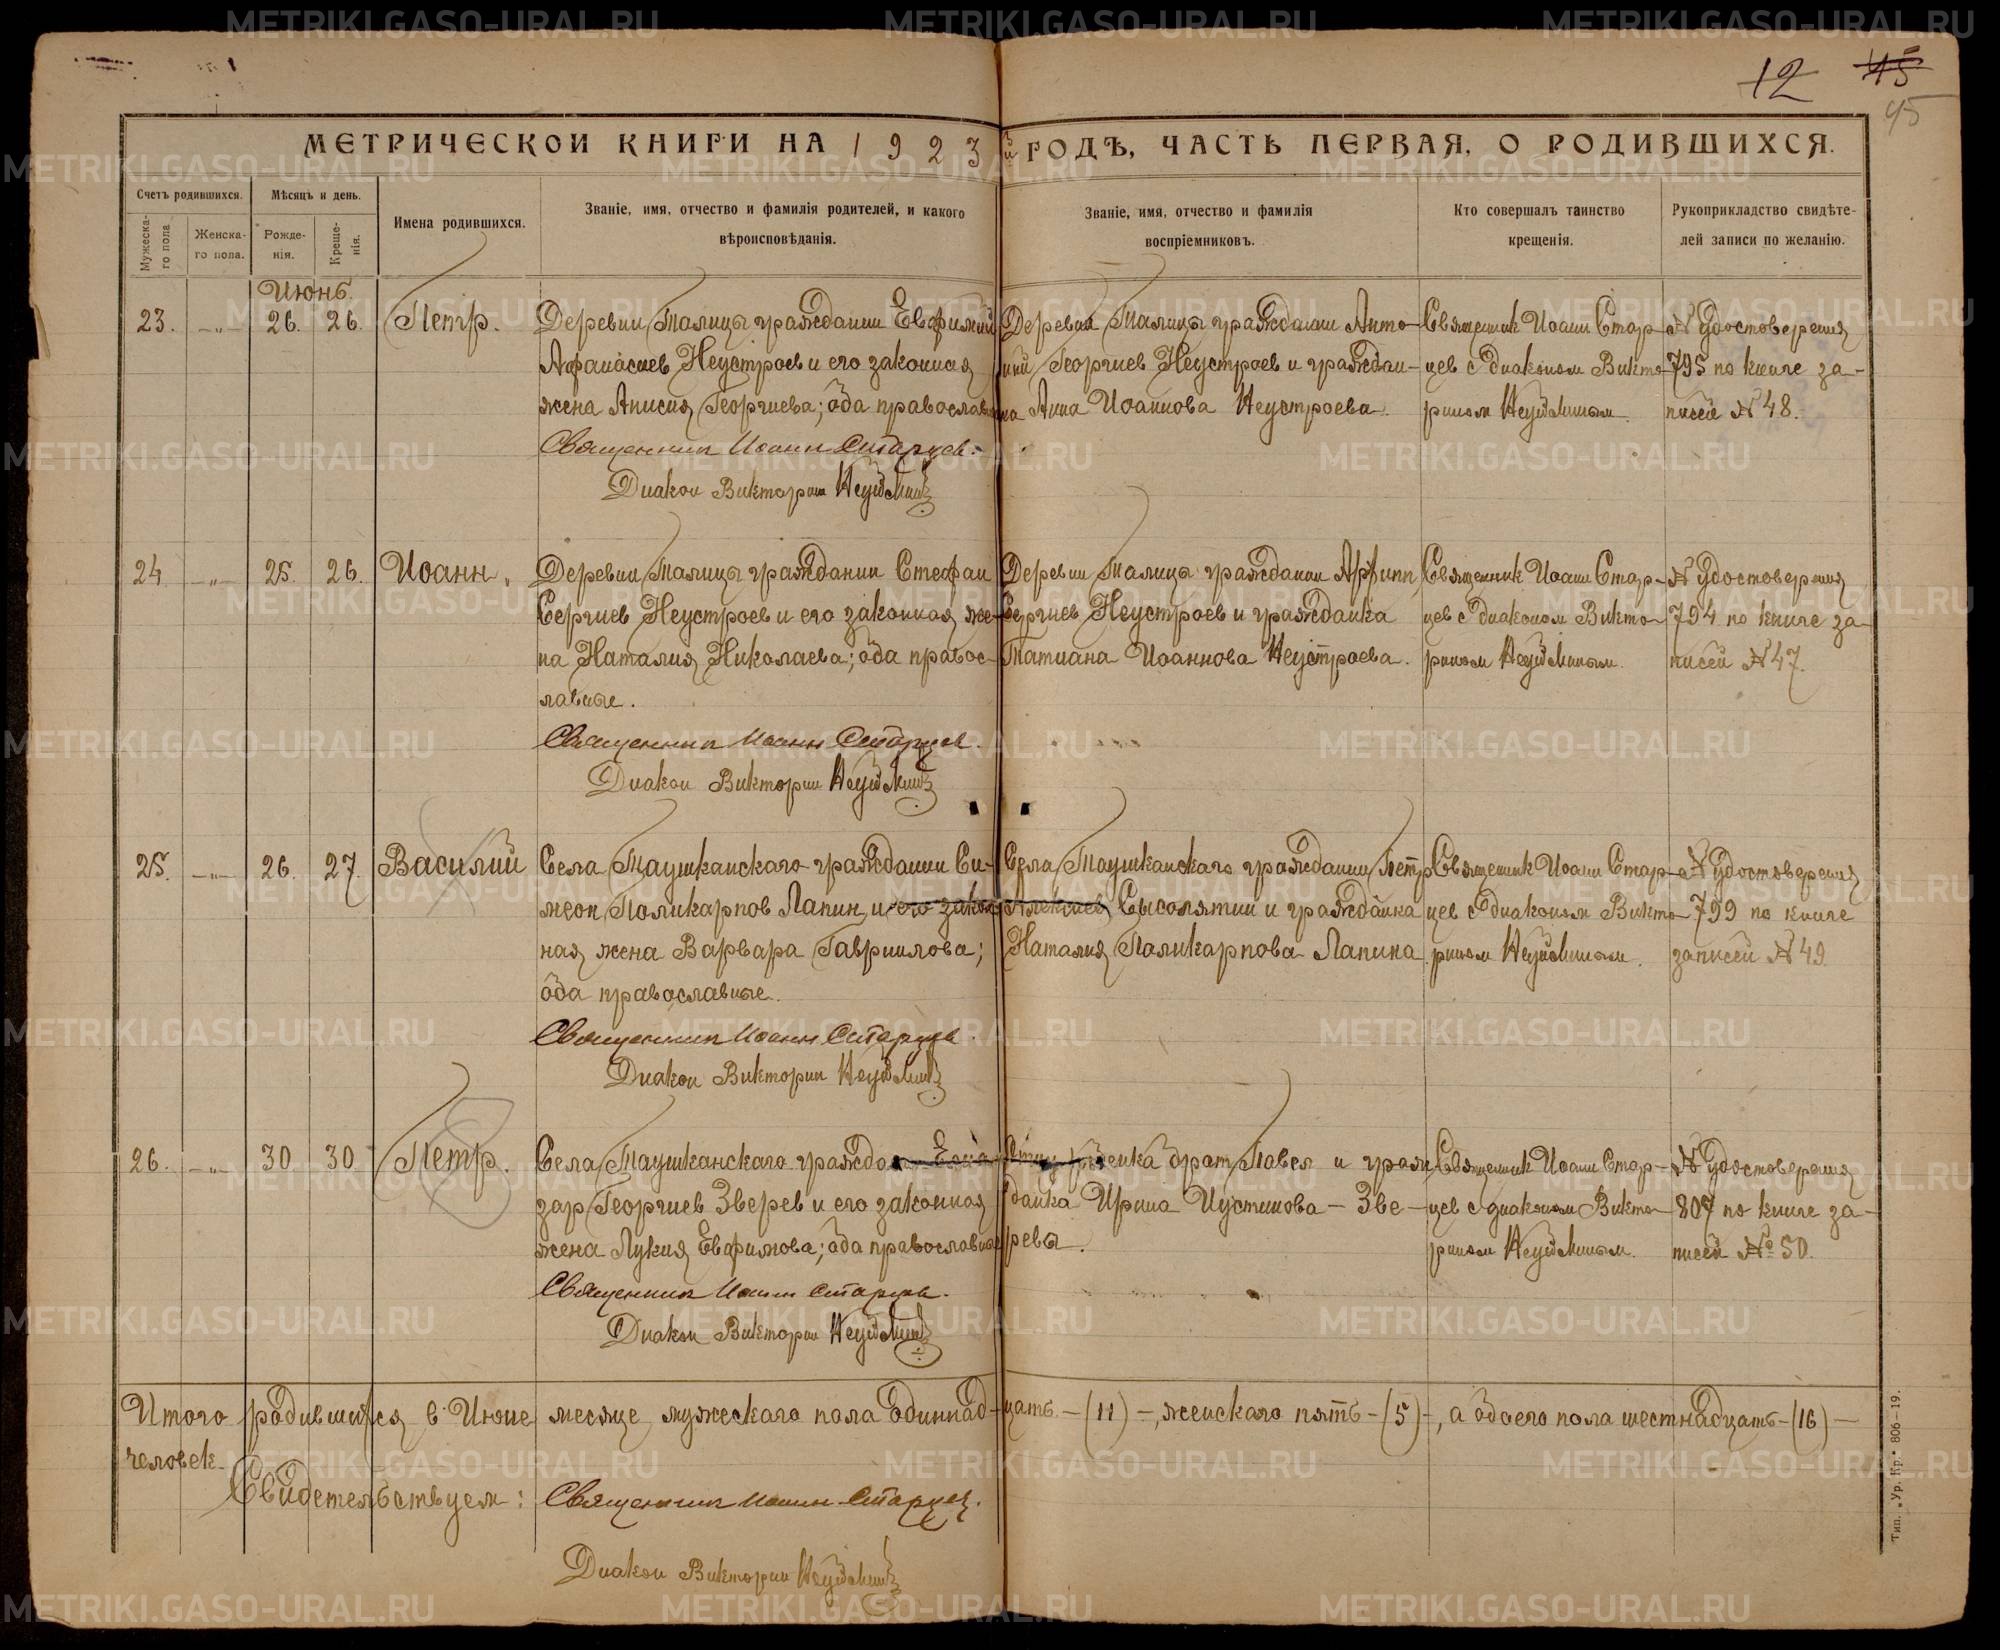 12 45
45
МЕТРИЧЕСКОЙ КНИГИ НА 1923й ГОДЪ, ЧАСТЬ ПЕРВАЯ, О РОДИВШИХСЯ.
Счетъ родившихся. Мѣсяцъ и день. Имена родившихся. Званіе, имя, отчество и фамилія родителей, и какого вѣроисповѣданія. Званіе, имя, отчество и фамилія воспріемниковъ. Кто совершалъ таинство крещенія. Рукоприкладство свидѣтелей записи по желанію.
Мужеска-го пола Женска-го пола. Рожде-нія. Креще-нія.
Июнь.
23. —„— 26. 26. Петр.
Деревни Талицы гражданин Евфимий
Афанасиев Неустроев и его законная
жена Анисия Георгиева; оба православные
Священник Иоанн Старцев.
Диакон Викторин Неуймин
Деревни Талицы гражданин Анто-
ний Георгиев Неустроев и граждан-
ка Анна Иоаннова Неустроева.
Священник Иоанн Стар-
цев с диаконом Викто-
рином Неуйминым.
№ Удостоверения
795 по книге за-
писей № 48.
24. —„— 25. 26. Иоанн.
Деревни Талицы гражданин Стефан
Сергиев Неустроев и его законная же-
на Наталия Николаева; оба правос-
лавные.
Священник Иоанн Старцев.
Диакон Викторин Неуймин
Деревни Талицы гражданин Архипп
Сергиев Неустроев и гражданка
Татиана Иоаннова Неустроева.
Священник Иоанн Стар-
цев с диаконом Викто-
рином Неуйминым.
№ Удостоверения
794 по книге за-
писей № 47.
25. —„— 26. 27. Василий
Села Таушканскаго гражданин Си-
меон Поликарпов Лапин и его закон-
ная жена Варвара Гавриилова;
оба православные.
Священник Иоанн Старцев.
Диакон Викторин Неуймин
Села Таушканскаго гражданин Петр
Алексиев Сысолятин и гражданка
Наталия Поликарпова Лапина.
Священник Иоанн Стар-
цев с диаконом Викто-
рином Неуйминым.
№ Удостоверения
799 по книге
записей № 49.
26. —„— 30 30 Петр.
Села Таушканскаго граждан Елеа-
зар Георгиев Зверев и его законная
жена Лукия Евфимова; оба православные
Священник Иоанн Старцев.
Диакон Викторин Неуймин
брат Павел и граж-
данка Ирина Иустинова — Зве-
ревы.
Священник Иоанн Стар-
цев с диаконом Викто-
рином Неуйминым.
№ Удостоверения
807 по книге за-
писей № 50.
Итого родившихся в Июне месяце мужескаго пола одиннадцать — (11) —, женскаго пять — (5) —, а обоего пола шестнадцать — (16) —
человек.
Свидетельствуем: Священник Иоанн Старцев.
Диакон Викторин Неуймин
Тип. „Ур. Кр.“ 806—19.
METRIKI.GASO-URAL.RU